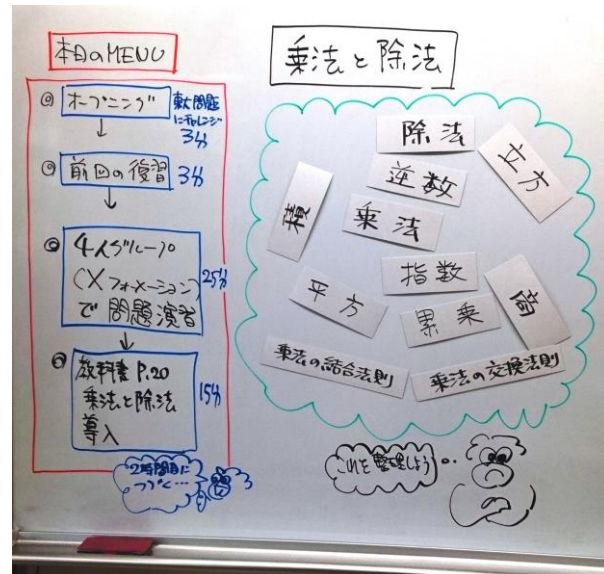 本日のMENU
オープニング
東大問題
にチャレンジ
3分
↓
前回の復習
3分
↓
4人グループ
(Xフォーメーション)
で問題演習
25分
↓
教科書 P.20
乗法と除法
導入
15分
2時間目に
つづく…
乗法と除法
除法
立方
逆数
積
乗法
指数
平方
累乗
商
乗法の結合法則
乗法の交換法則
これを整理しよう